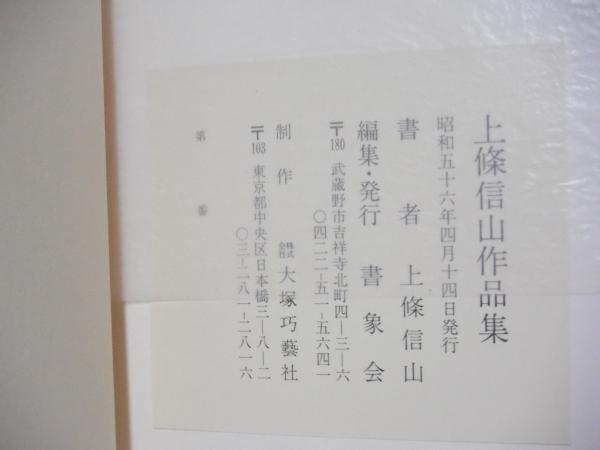 上條信山作品集
昭和五十六年四月十四日発行
書者 上條信山
編集・発行 書象会
〒180 武蔵野市吉祥寺北町四―三―六
〇四二二―五一―五六四一
制作 株式会社 大塚巧藝社
〒103 東京都中央区日本橋三―八―二
〇三―二八一―二八一六
第 番